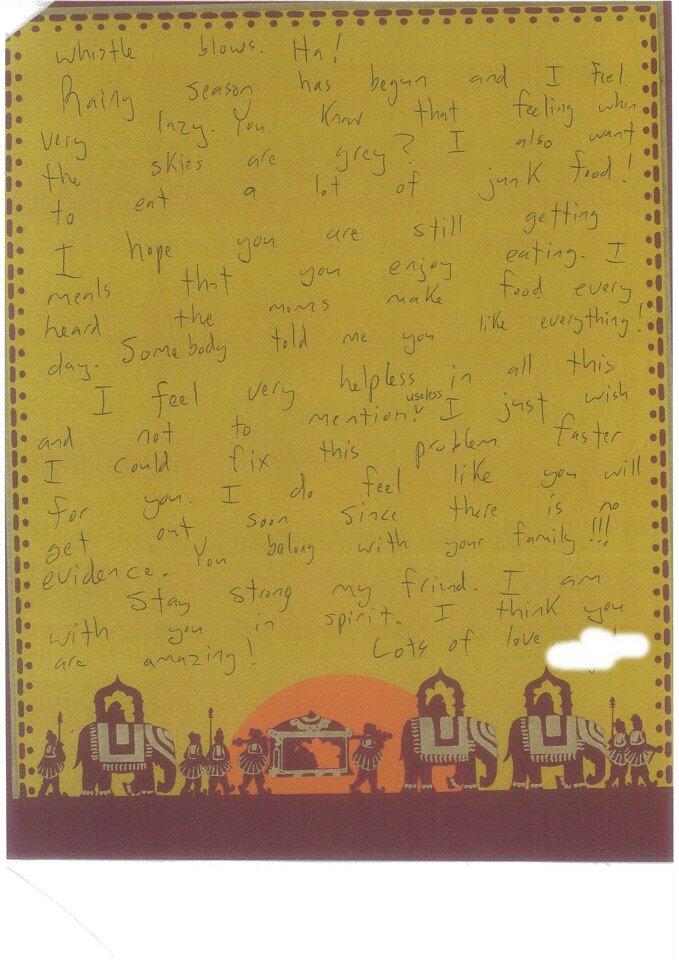 whistle blows. Ha!
Rainy season has begun and I feel
very lazy. You know that feeling when
the skies are grey? I also want
to eat a lot of junk food!
I hope you are still getting
meals that you enjoy eating. I
heard the moms make food every
day. Somebody told me you like everything!
I feel very helpless in all this
and not to mention useless! I just wish
I could fix this problem faster
for you. I do feel like you will
get out soon since there is no
evidence. You belong with your family!!!
Stay strong my friend. I am
with you in spirit. I think you
are amazing! Lots of love